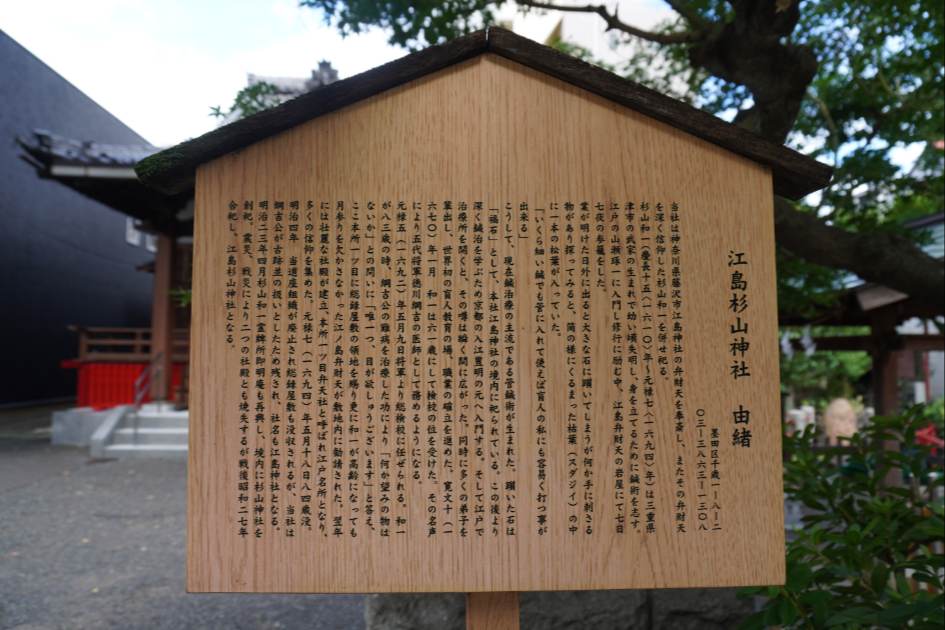 江島杉山神社　由緒
墨田区千歳一―八―二
〇三―三八六三―一三〇八
当社は神奈川県藤沢市江島神社の弁財天を奉斎し、またその弁財天
を深く信仰した杉山和一を併せ祀る。
杉山和一(慶長十五(一六一〇)年～元禄七(一六九四)年)は三重県
津市の武家の生まれで幼い頃失明し、身を立てるために鍼術を志す。
江戸の山瀬琢一に入門し修行に励む中、江島弁財天の岩屋にて七日
七夜の参籠をした。
業が明けた日外に出ると大きな石に躓いてしまうが何か手に刺さる
物があり探ってみると、筒の様にくるまった枯葉(スダジイ)の中
に一本の松葉が入っていた。
「いくら細い鍼でも管に入れて使えば盲人の私にも容易く打つ事が
出来る」
こうして、現在鍼治療の主流である管鍼術が生まれた。躓いた石は
「福石」として、本社江島神社の境内に祀られている。この後より
深く鍼治を学ぶため京都の入江豊明の元へ入門する。そして江戸で
治療所を開くと、その噂は瞬く間に広がった。同時に多くの弟子を
輩出し、世界初の盲人教育の場、職業の確立を進めた。寛文十(一
六七〇)年一月　和一は六一歳にして検校の位を受けた。その名声
により五代将軍徳川綱吉の医師として務めるようになる。
元禄五(一六九二)年五月九日将軍より総検校に任ぜられる。和一
が八三歳の時、綱吉公の難病を治療した功により「何か望みの物は
ないか」との問いに「唯一つ、目が欲しゅうございます」と答え、
ここ本所一ッ目に総録屋敷の領地を賜り更に和一が高齢になっても
月参りを欠かさなかった江ノ島弁財天が敷地内に勧請された。翌年
には壮麗な社殿が建立、本所一ッ目弁天社と呼ばれ江戸名所となり、
多くの信仰を集めた。元禄七(一六九四)年五月十八日八四歳没。
明治四年　当道座組織が廃止され総録屋敷も没収されるが、当社は
綱吉公が古跡並の扱いとしたため残され、社名も江島神社となる。
明治二三年四月杉山和一霊牌所即明庵も再興し、境内に杉山神社を
創祀。震災、戦災により二つの社殿とも焼失するが戦後昭和二七年
合祀し、江島杉山神社となる。